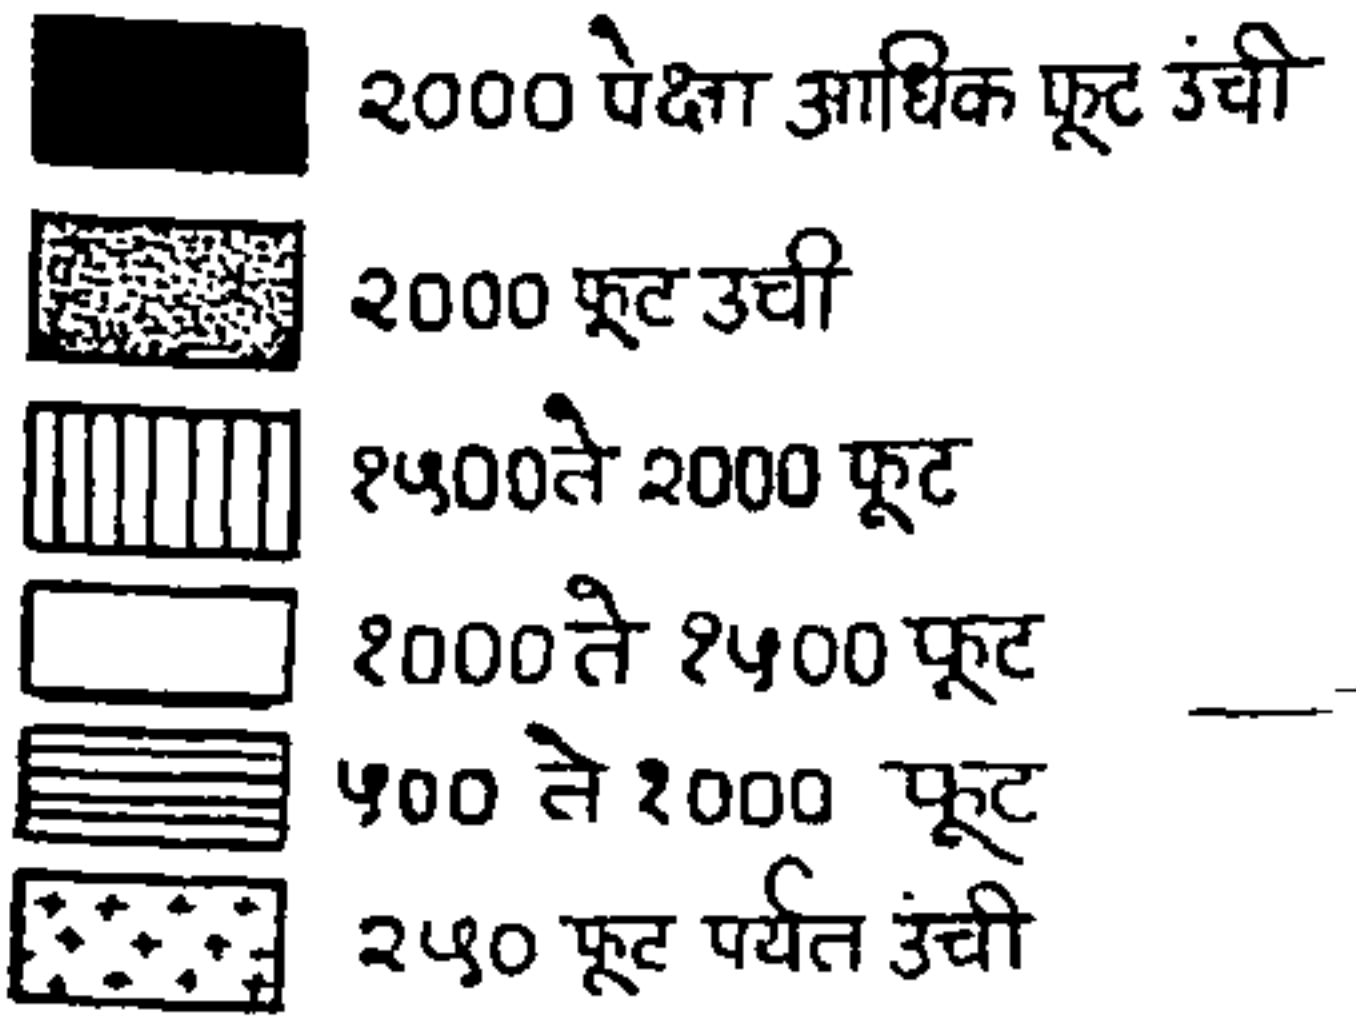 २००० पेक्षा आधिक फूट उंची
२००० फूट उची
१५०० ते २००० फूट
१००० ते १५०० फूट
५०० ते १००० फूट
२५० फूट पर्यत उंची